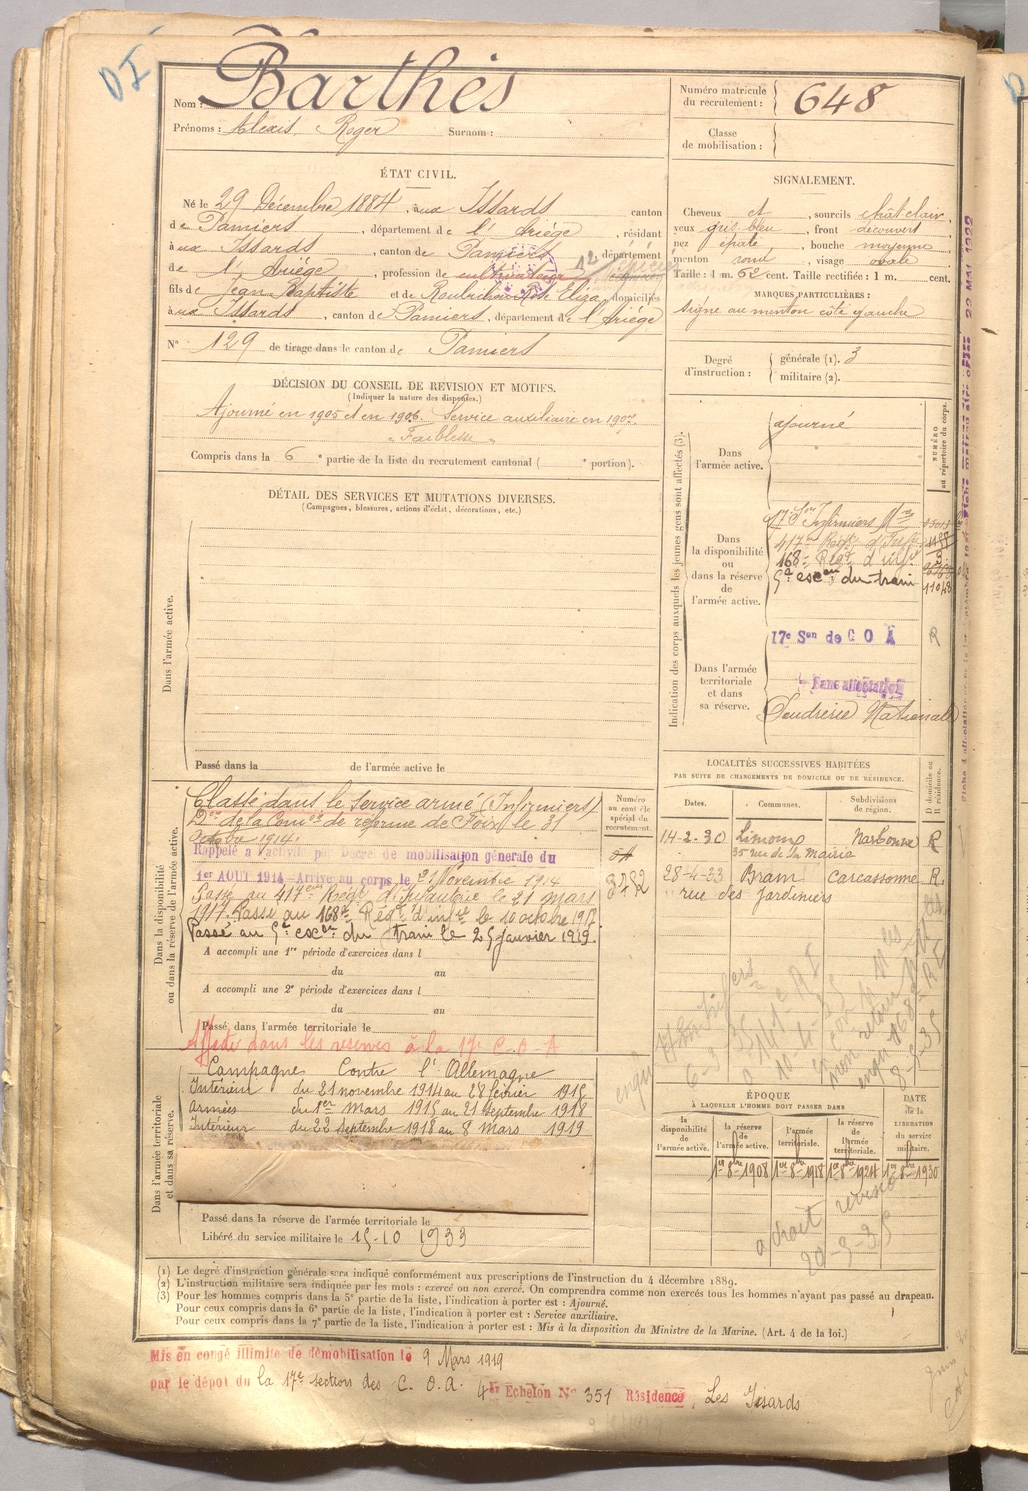 DI
Nom : Barthès
Prénoms : Alexis, Roger Surnom :
Numéro matricule du recrutement : 648
Classe de mobilisation :
ÉTAT CIVIL.
Né le 29 Décembre 1884, aux Issards canton
de Pamiers, département de l'Ariége, résidant
à aux Issards, canton de Pamiers, département
de l'Ariége, profession de cultivateur
fils de Jean Baptiste et de Eliza, domiciliés
à aux Issards, canton de Pamiers, département de l'Ariége
N° 129 de tirage dans le canton de Pamiers
SIGNALEMENT.
Cheveux ct, sourcils chât clair,
yeux gris-bleu, front découvert
nez épaté, bouche moyenne
menton rond, visage ovale
Taille : 1 m. 62 cent. Taille rectifiée : 1 m. cent.
MARQUES PARTICULIÈRES :
signe au menton côté gauche
Degré d'instruction : générale (1). 3
militaire (2).
DÉCISION DU CONSEIL DE REVISION ET MOTIFS.
(Indiquer la nature des dispenses.)
Ajourné en 1905 et en 1906. Service auxiliaire en 1907.
"Faiblesse"
Compris dans la 6e partie de la liste du recrutement cantonal ( e portion).
DÉTAIL DES SERVICES ET MUTATIONS DIVERSES.
(Campagnes, blessures, actions d'éclat, décorations, etc.)
Dans l'armée active.
Passé dans la de l'armée active le
Indication des corps auxquels les jeunes gens sont affectés (3).
NUMÉRO au répertoire du corps.
Dans l'armée active.
ajourné
Dans la disponibilité ou dans la réserve de l'armée active.
17e Son Infirmiers Mres
417e Regt d'Infie
168e Régt d'infie
5e escon du train 11048
Dans l'armée territoriale et dans sa réserve.
17e Son de C O A R
Sans affectation
Poudrerie Nationale
22 MAI 1922
Dans la disponibilité ou dans la réserve de l'armée active.
Classé dans le service armé (Infirmiers)
Don de la Comon de réforme de Foix le 31
octobre 1914.
Rappelé à l'activité par Décret de mobilisation générale du
1er AOUT 1914 - Arrivé au corps le 21 Novembre 1914
Passé au 417eme Régt d'Infanterie le 21 mars
1917. Passé au 168e Régt d'infie le 10 octobre 1917.
Passé au 5e escon du train le 25 janvier 1919.
A accompli une 1re période d'exercices dans l
du au
A accompli une 2e période d'exercices dans l
du au
Passé dans l'armée territoriale le
Affecté dans les réserves à la 17e C.O.A
Numéro au contrôle spécial du recrutement.
3132
LOCALITÉS SUCCESSIVES HABITÉES
PAR SUITE DE CHANGEMENTS DE DOMICILE OU DE RÉSIDENCE.
Dates. Communes. Subdivisions de région. D domicile ou R résidence.
14-2-30 Limoux Narbonne R
35 rue de la Mairie
28-4-33 Bram Carcassonne R
rue des Jardiniers
Dans l'armée territoriale et dans sa réserve.
Campagne Contre l'Allemagne
Intérieur du 21 novembre 1914 au 28 février 1915
Armées du 1er Mars 1915 au 21 Septembre 1918
Intérieur du 22 Septembre 1918 au 8 Mars 1919
Passé dans la réserve de l'armée territoriale le
Libéré du service militaire le 15-10 1933
ÉPOQUE
À LAQUELLE L'HOMME DOIT PASSER DANS
DATE de la LIBÉRATION du service militaire.
la disponibilité de l'armée active. la réserve de l'armée active. l'armée territoriale. la réserve de l'armée territoriale.
1er 8bre 1908 1er 8bre 1918 1er 8bre 1924 1er 8bre 1930
a droit
20-3-35
(1) Le degré d'instruction générale sera indiqué conformément aux prescriptions de l'instruction du 4 décembre 1889.
(2) L'instruction militaire sera indiquée par les mots : exercé ou non exercé. On comprendra comme non exercés tous les hommes n'ayant pas passé au drapeau.
(3) Pour les hommes compris dans la 5e partie de la liste, l'indication à porter est : Ajourné.
Pour ceux compris dans la 6e partie de la liste, l'indication à porter est : Service auxiliaire.
Pour ceux compris dans la 7e partie de la liste, l'indication à porter est : Mis à la disposition du Ministre de la Marine. (Art. 4 de la loi.)
Mis en congé illimité de démobilisation le 9 Mars 1919
par le dépot du la 17e section des C.O.A. 4e Echelon N° 351 Résidence, Les Issards